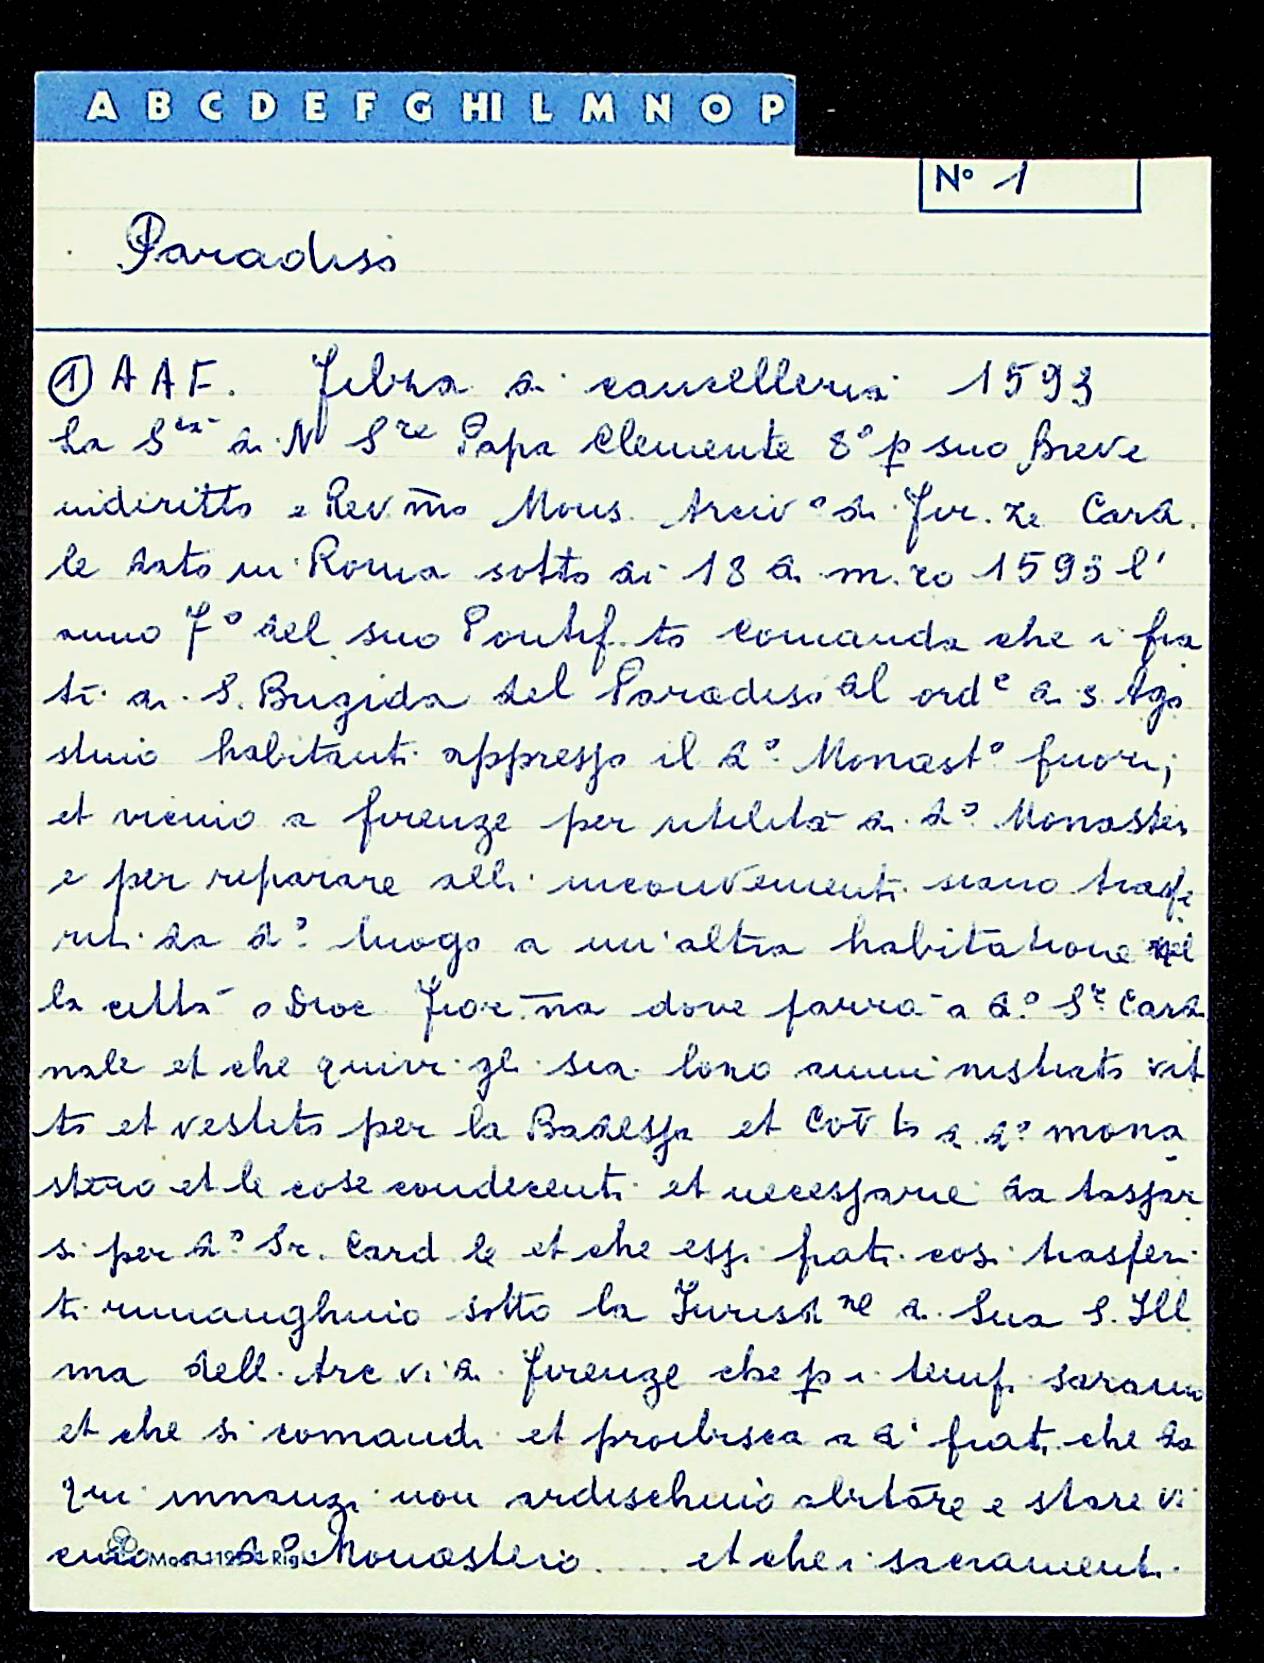 A B C D E F G HI L M N O P
Nº 1
Paradiso
① A A F. Filza di cancelleria 1593
La S.tà di N S.re Papa Clemente 8º p suo Breve
indiritto e Rev mo Mons. Arciv.º di Fir. ze Card.
le dato in Roma sotto di 13 di m. zo 1593 l'
anno 7º del suo Pontif. to comanda che i fra
ti di S. Brigida del Paradiso dl ord.e di S. Ago
stino habitanti appresso il d.º Monast.º fuori,
et vicino a firenze per utilità di d.º Monaster
e per reparare alli inconvenienti siano trasfe
riti da d.º luogo a un'altra habitatione nel
la città o Dioc Fior. na dove parrà a d.º S.r Cardi
nale et che quivi gli sia loro amministrato vit
to et vestito per la Badessa et Cov to d d.º mona
stero et le cose condecenti et necessarie da tassar
si per d.º Sr. Card le et che essi frati così trasferi
ti rimanghino sotto la Jurisd ne di Sua S. Ill
ma dell. Arc v. di firenze che p i temp. saranno
et che si comandi et proibisca a d' frati che da
qui innanzi non ardischino abitare e stare vi
cino a d.º Monasterio .... et che i sacramenti